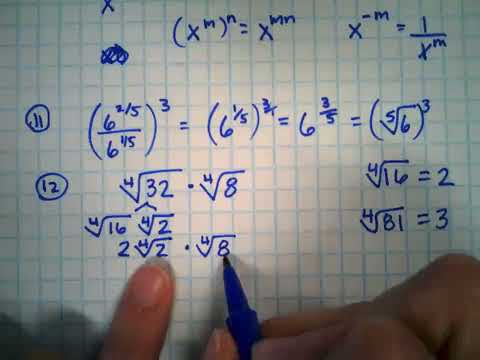 x
(x^m)^n = x^{mn}   x^{-m} = \frac{1}{x^m}
⑪ \left(\frac{6^{2/5}}{6^{1/5}}\right)^3 = (6^{1/5})^{3/1} = 6^{\frac{3}{5}} = (\sqrt[5]{6})^3
⑫ \sqrt[4]{32} · \sqrt[4]{8}   \sqrt[4]{16} = 2
\sqrt[4]{16} \sqrt[4]{2}   \sqrt[4]{81} = 3
2\sqrt[4]{2} · \sqrt[4]{8}